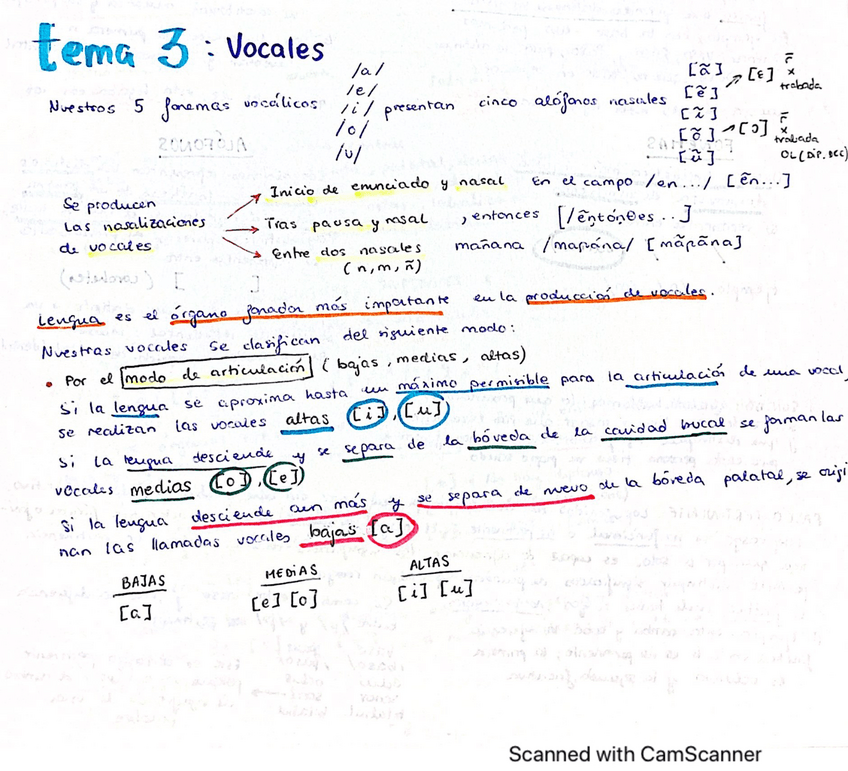 tema 3 : Vocales
Nuestros 5 fonemas vocálicos /a/ /e/ /i/ /o/ /u/ presentan cinco alófonos nasales [ã] [ẽ] [ĩ] [õ] [ũ]
[ɛ] r̄ x trabada
[ɔ] r̄ x trabada OL (DIP. DEC)
Se producen las nasalizaciones de vocales
Inicio de enunciado y nasal En el campo /en .../ [ẽn...]
Tras pausa y nasal , entonces [/ẽntónθes ..]
Entre dos nasales mañana /maɲána/ [mãɲãna]
(n, m, ñ)
Lengua es el órgano fonador más importante en la producción de vocales.
Nuestras vocales se clasifican del siguiente modo:
• Por el modo de articulación (bajas, medias, altas)
Si la lengua se aproxima hasta un máximo permisible para la articulación de una vocal,
se realizan las vocales altas [i], [u]
Si la lengua desciende y se separa de la bóveda de la cavidad bucal se forman las
vocales medias [o], [e]
Si la lengua desciende aun más y se separa de nuevo de la bóveda palatal, se origi
nan las llamadas vocales bajas [a]
BAJAS MEDIAS ALTAS
[a] [e] [o] [i] [u]
Scanned with CamScanner